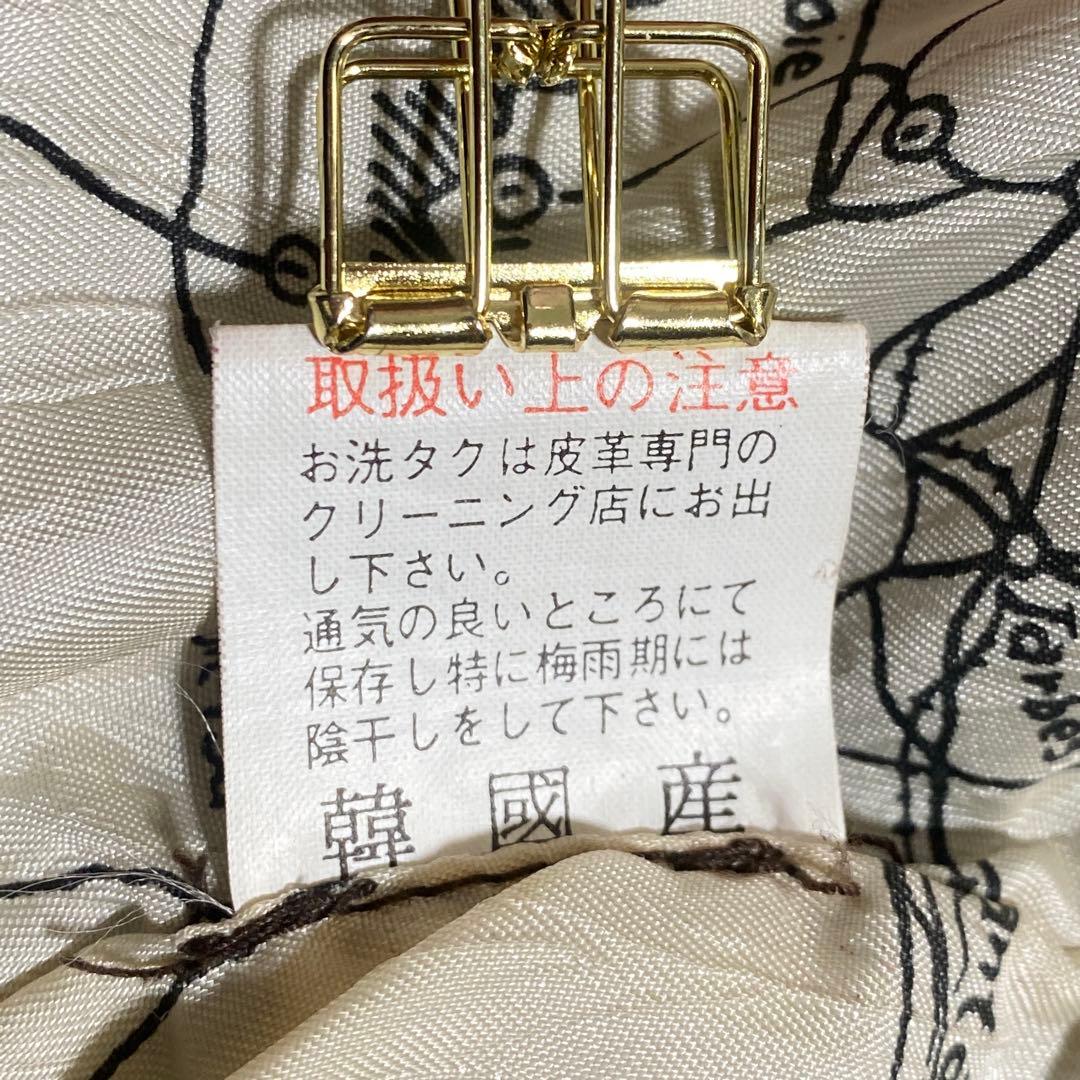 取扱い上の注意
お洗タクは皮革専門の
クリーニング店にお出
し下さい。
通気の良いところにて
保存し特に梅雨期には
陰干しをして下さい。
韓國産